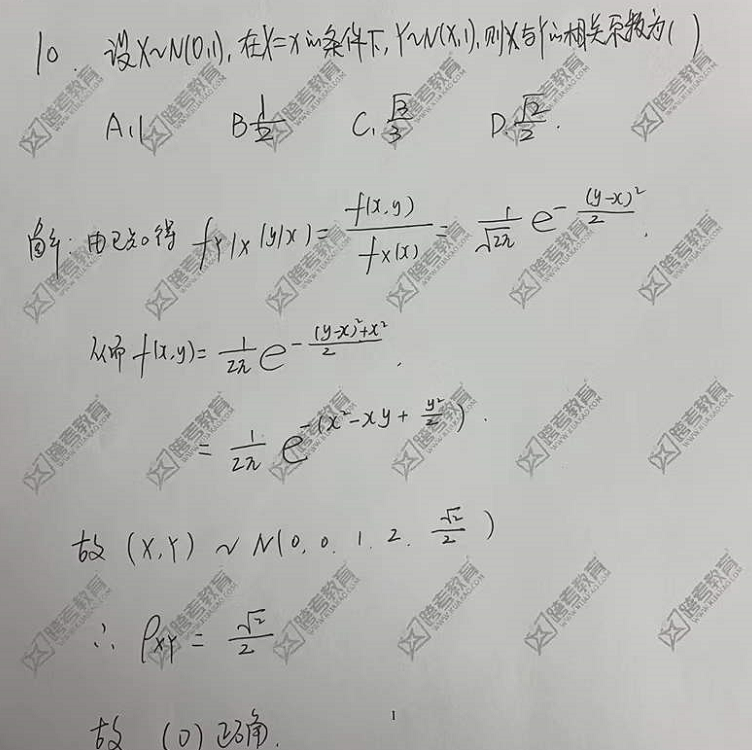 10. 设X~N(0,1), 在X=x的条件下, Y~N(X,1), 则X与Y的相关系数为( )
A. 1 B. 1/2 C. √3/3 D. √2/2.
解: 由已知得 f_{Y|X}(y|x) = f(x,y)/f_X(x) = 1/√2π e^{-(y-x)²/2}.
从而 f(x,y) = 1/2π e^{-((y-x)²+x²)/2}.
= 1/2π e^{-(x²-xy+y²/2)}.
故 (X,Y) ~ N(0, 0, 1, 2, √2/2)
∴ ρ_{XY} = √2/2
故 (D) 正确.
1
跨考教育
WWW.KUAKAO.COM